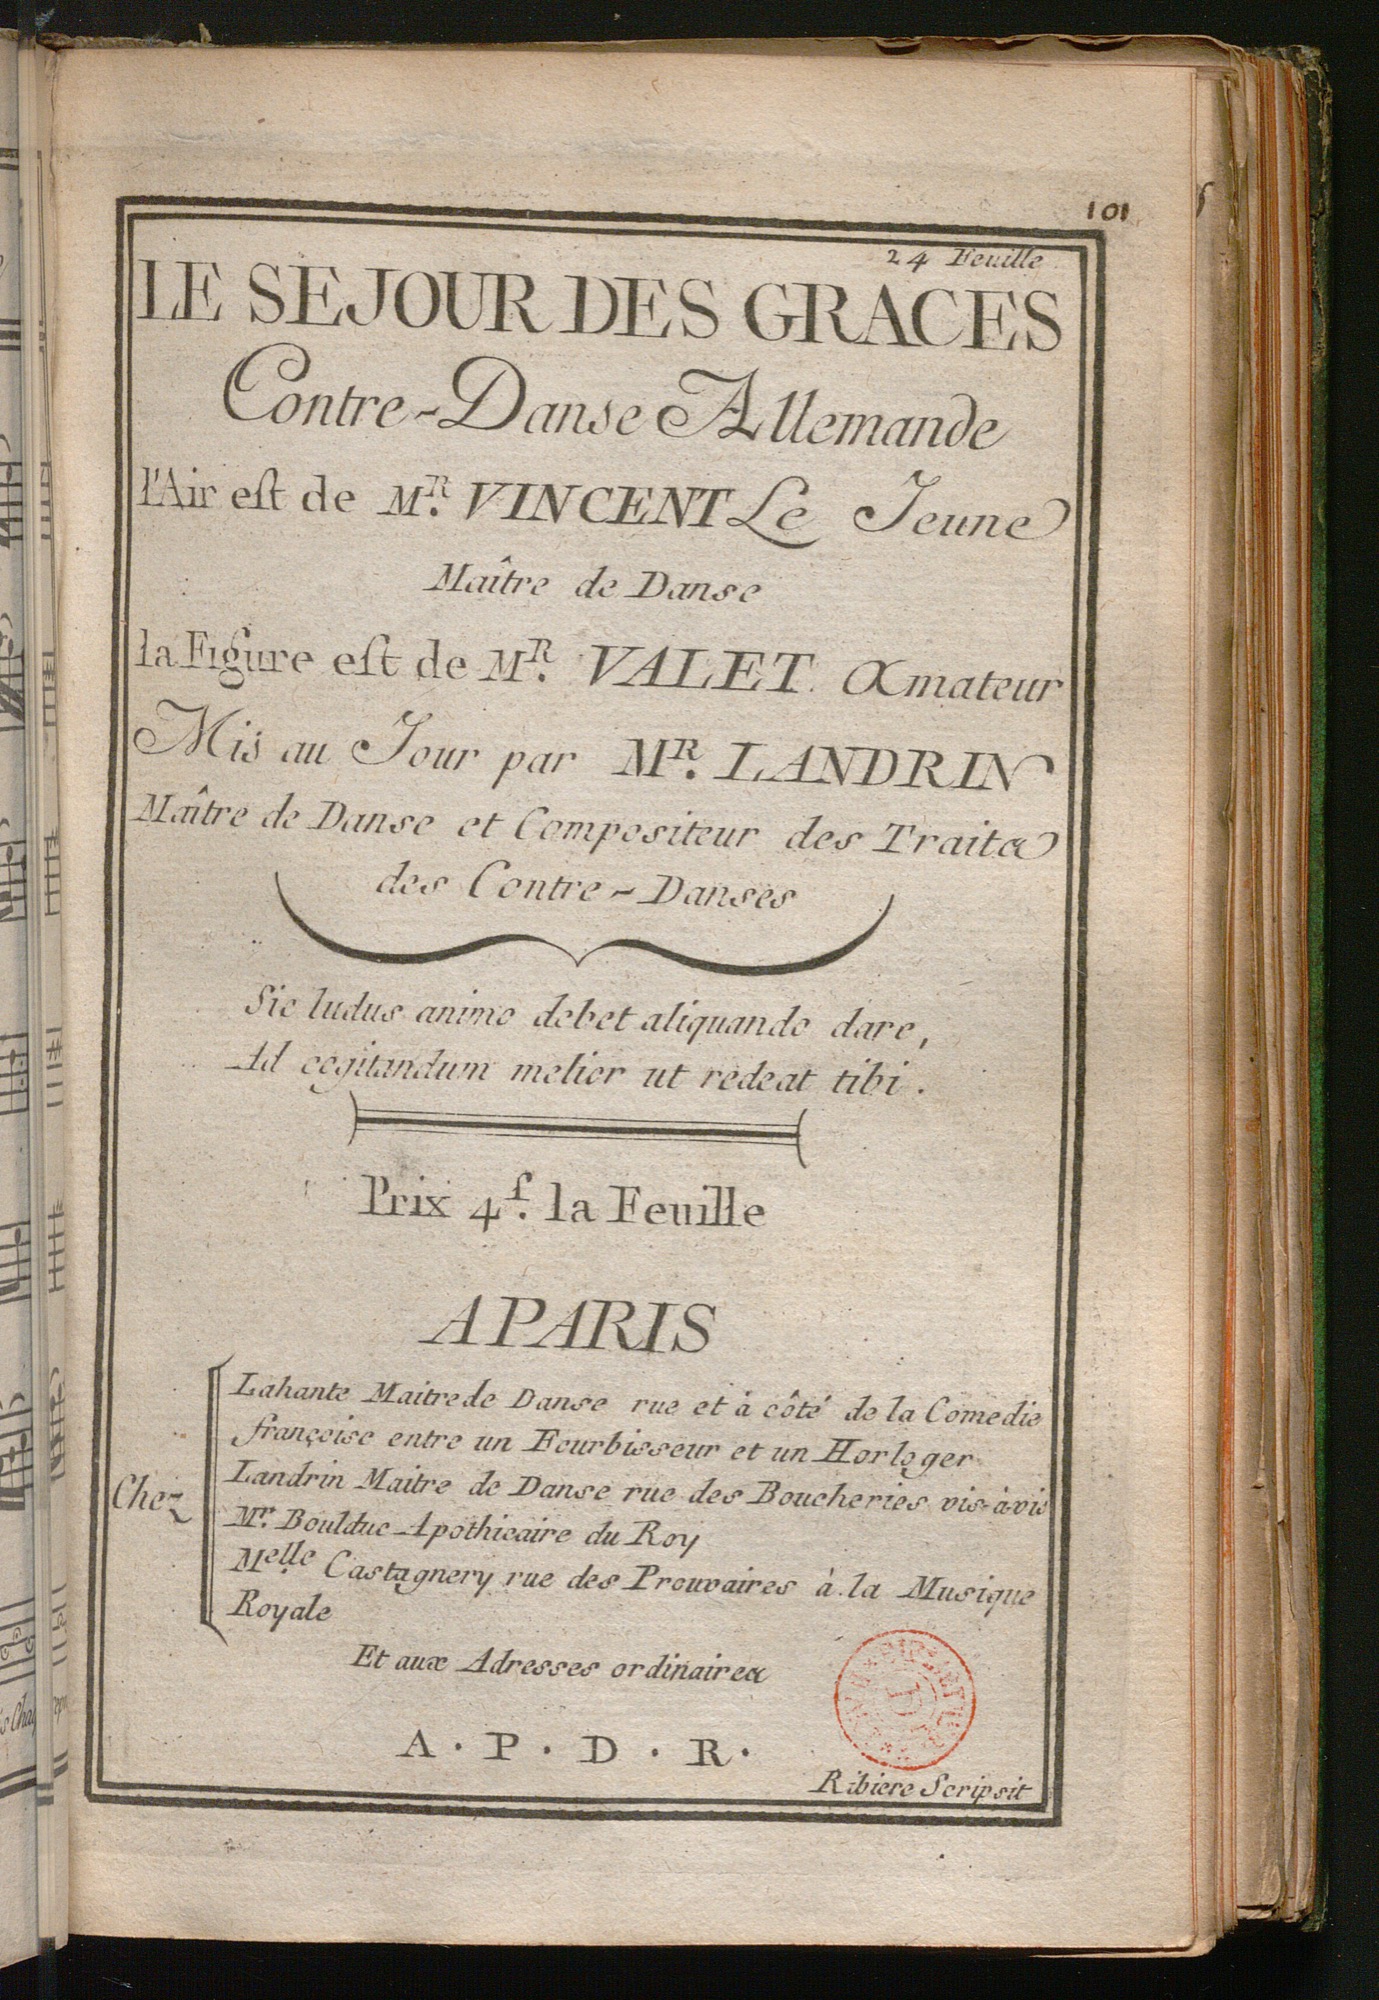 101
24 Feuille
LE SEJOUR DES GRACES
Contre-Danse Allemande
l'Air eſt de Mᴿ. VINCENT Le Jeune
Maître de Danse
la Figure eſt de Mᴿ. VALET Amateur
Mis au Jour par Mᴿ. LANDRIN
Maître de Danse et Compositeur des Traits
des Contre-Danses
Sic ludus animo debet aliquando dare,
Ad cogitandum melior ut redeat tibi.
Prix 4ſ. la Feuille
A PARIS
Chez
Lahante Maitre de Danse rue et à côté de la Comedie
françoise entre un Fourbisseur et un Horloger
Landrin Maitre de Danse rue des Boucheries vis-à-vis
Mr. Boulduc Apothicaire du Roy
Melle. Castagnery rue des Prouvaires à la Musique
Royale
Et aux Adresses ordinaires
A . P . D . R .
Ribiere Scripsit